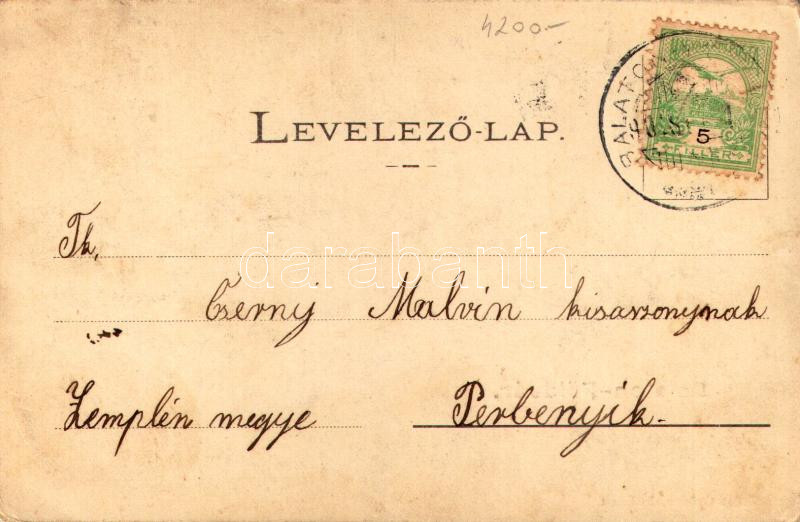 4200.-
LEVELEZŐ-LAP.
5
FILLÉR
Tk.
Cserny Malvin kisasszonynak
Zemplén megye Perbenyik.
darabanth